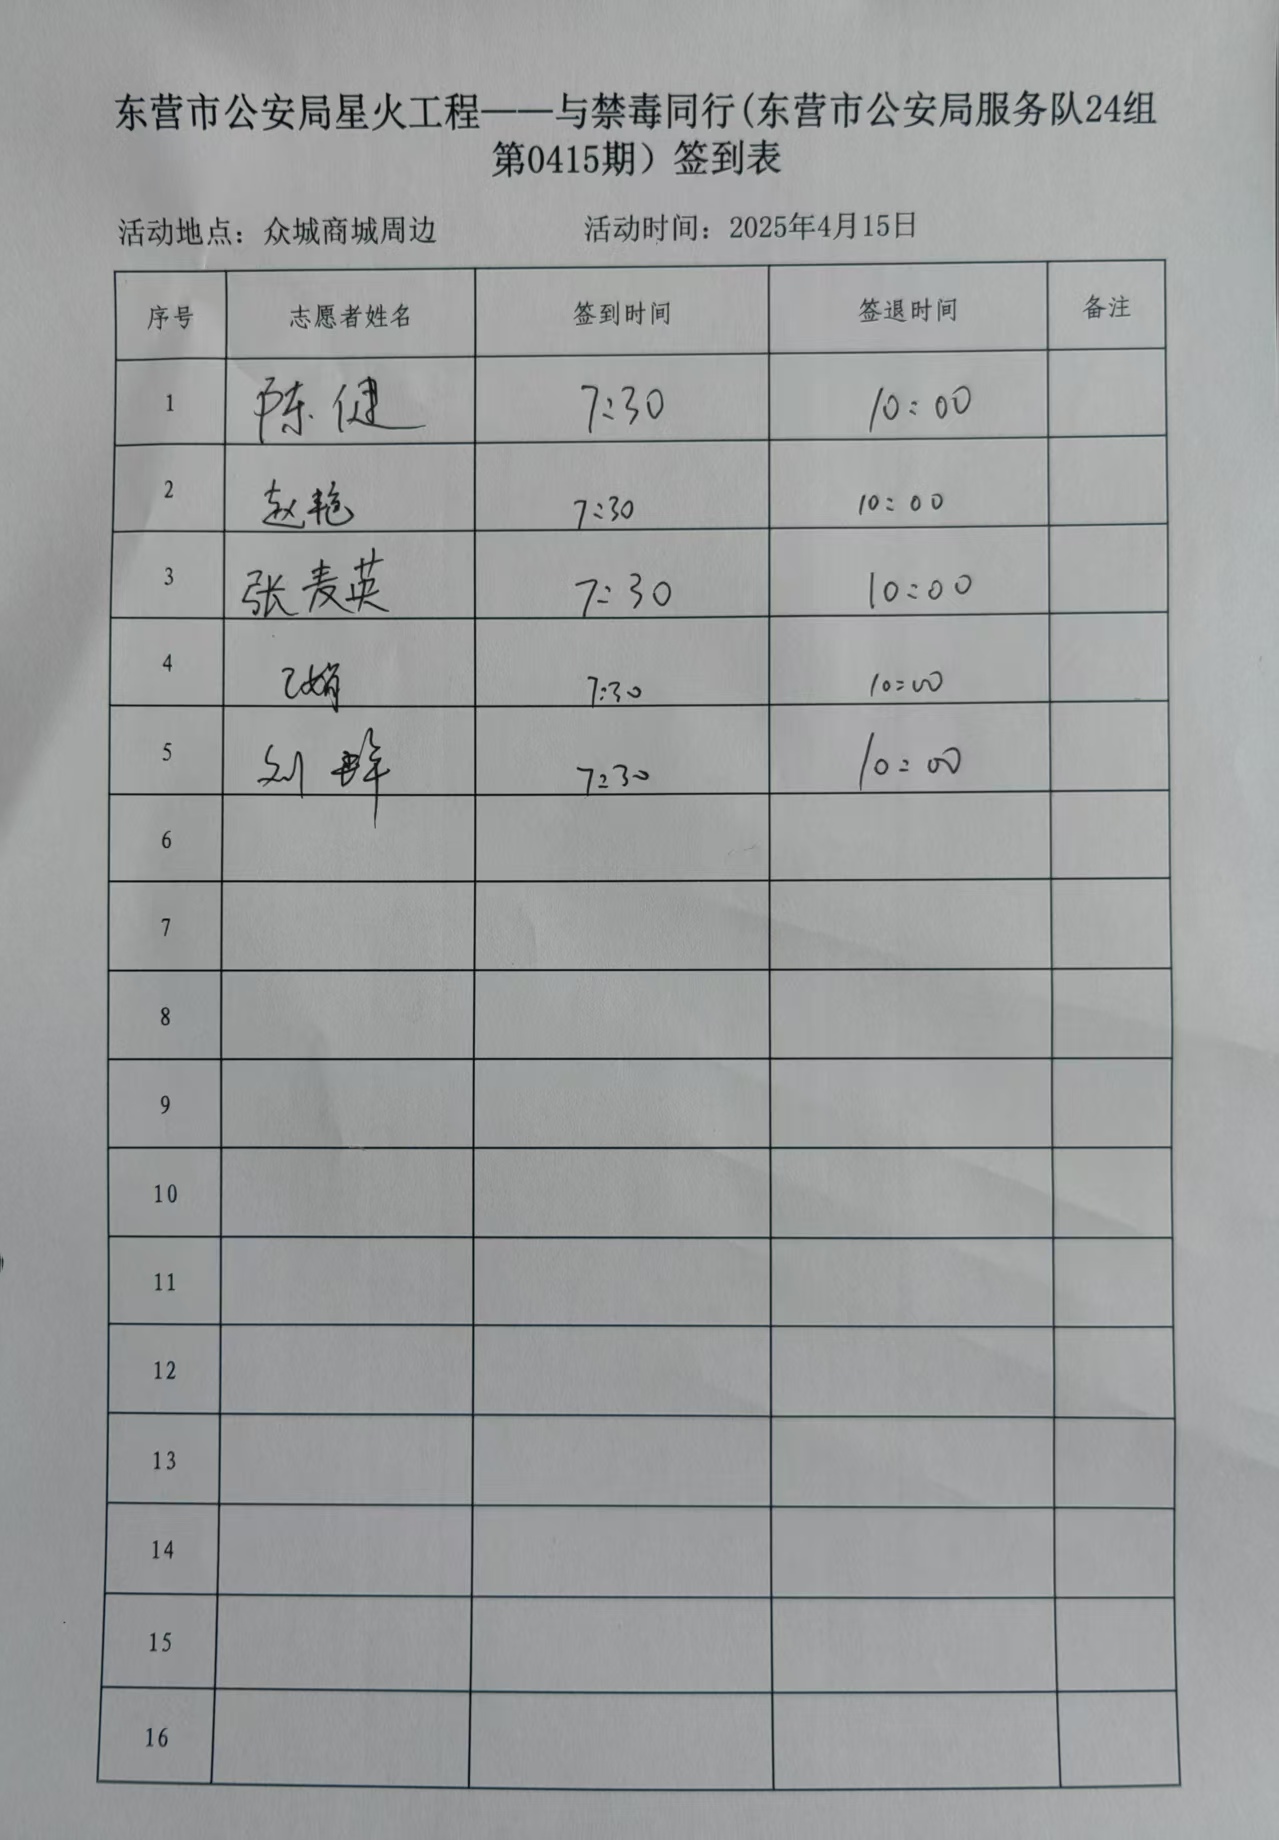 东营市公安局星火工程——与禁毒同行(东营市公安局服务队24组
第0415期）签到表
活动地点：众城商城周边 活动时间：2025年4月15日
序号 志愿者姓名 签到时间 签退时间 备注
1 陈健 7:30 10:00
2 赵艳 7:30 10:00
3 张麦英 7:30 10:00
4 7:30 10:00
5 刘 7:30 10:00
6
7
8
9
10
11
12
13
14
15
16